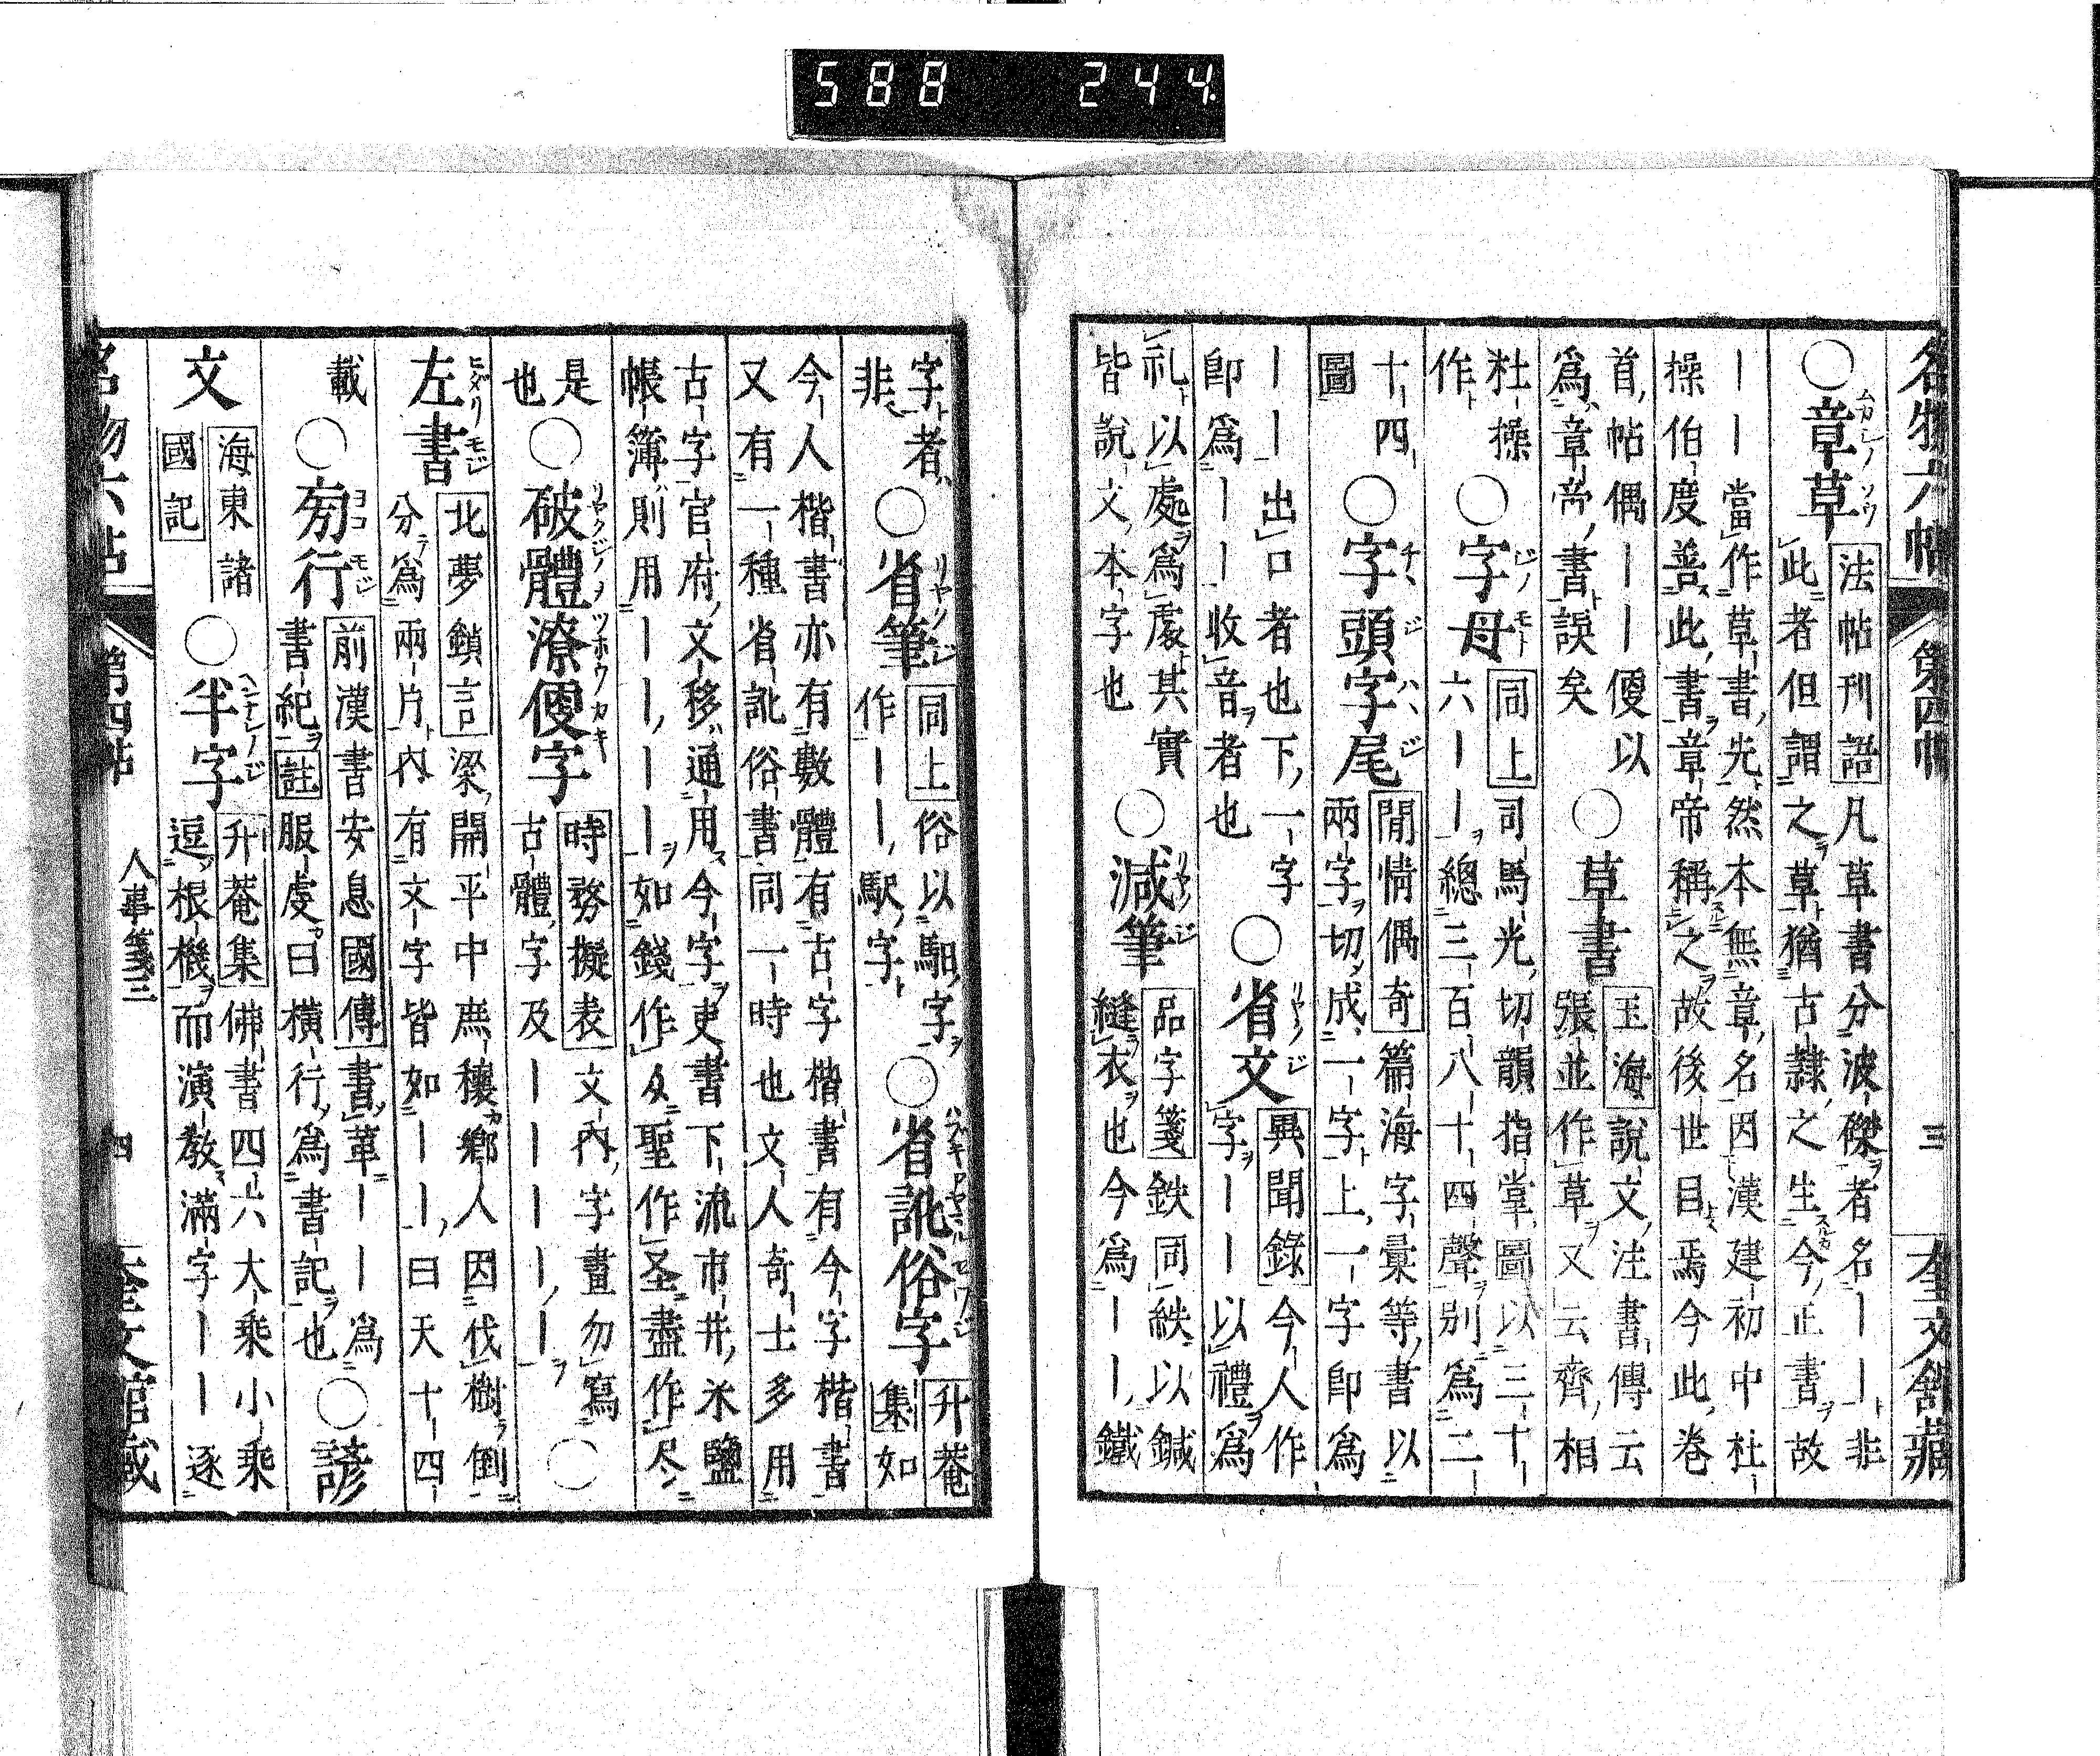 588 244
名物六帖 第四帖 三 奎文舘藏
○章草 法帖刊誤 凡草書分波磔者名｜｜非
此者但謂之草猶古隷之生今正書故
｜｜當作草書先然本無章名因漢建初中杜
操伯度善此書章帝稱之故後世目焉今此卷
首帖偶｜｜｜便以
爲章帝書誤矣
○草書 玉海 説文注書傳云
張並作草又云齊相
杜操
作
○字母 同上 司馬光切韻指掌圖以三十
六｜｜總三百八十四聲別爲二
十四
圖
○字頭字尾 閒情偶寄 篇海字彙等書以
兩字切成一字上一字即爲
｜｜出口者也下一字
即爲｜｜收音者也
○省文 異聞錄 今人作
字｜｜以禮爲
礼以處爲処其實
皆説文本字也
○減筆 品字箋 鉄同紩以鍼
縫衣也今爲｜｜鐵
字者
非
○省筆 同上 俗以馹字
作｜｜駅字
○省訛俗字 升菴集 如
今人楷書亦有數體有古字楷書有今字楷書
又有一種省訛俗書同一時也文人奇士多用
古字官府文移通用今字吏書下流市井米鹽
帳簿則用｜｜｜｜如錢作㕛聖作圣盡作尽
是
也
○破體潦便字 時務擬表 文内字畫勿寫
古體字及｜｜｜｜｜
○
左書 北夢鎖言 梁開平中鹿穰鄉人因伐樹倒
分爲兩片内有文字皆如｜｜曰天十四
載
○旁行 前漢書安息國傳 書革｜｜爲
書紀 註 服虔曰橫行爲書記也
○諺
文 海東諸
國記
○半字 升菴集 佛書四六大乘小乘
逗根機而演教滿字｜｜逐
名物六帖 第四帖 人事箋三 四 奎文舘藏